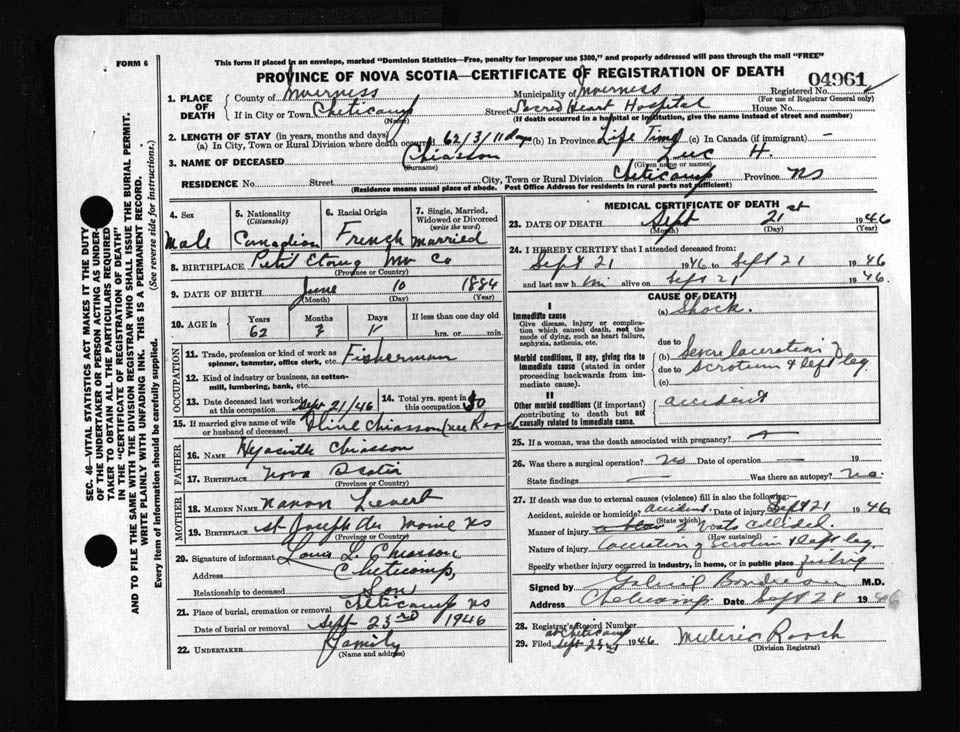 FORM 6
This form if placed in an envelope, marked "Dominion Statistics—Free, penalty for improper use $300," and properly addressed will pass through the mail "FREE"
PROVINCE OF NOVA SCOTIA—CERTIFICATE OF REGISTRATION OF DEATH
04961
1. PLACE OF DEATH
County of Inverness Municipality of Inverness Registered No.
(For use of Registrar General only)
If in City or Town Cheticamp Street Sacred Heart Hospital House No.
(Name) (If death occurred in a hospital or institution, give the name instead of street and number)
2. LENGTH OF STAY (in years, months and days)
(a) In City, Town or Rural Division where death occurred 62/3/11 days (b) In Province Life Time (c) In Canada (if immigrant) —
3. NAME OF DECEASED Chiasson Luc H.
(Surname) (Given name or names)
RESIDENCE No. Street City, Town or Rural Division Cheticamp Province NS
(Residence means usual place of abode. Post Office Address for residents in rural parts not sufficient)
4. Sex Male
5. Nationality (Citizenship) Canadian
6. Racial Origin French
7. Single, Married, Widowed or Divorced (write the word) Married
8. BIRTHPLACE Petit Etang Inv Co
(Province or Country)
9. DATE OF BIRTH June 10 1884
(Month) (Day) (Year)
10. AGE in Years Months Days If less than one day old
62 3 11 hrs. or min.
OCCUPATION
11. Trade, profession or kind of work as spinner, teamster, office clerk, etc. Fisherman
12. Kind of industry or business, as cotton-mill, lumbering, bank, etc.
13. Date deceased last worked at this occupation Sept 21/46
14. Total yrs. spent in this occupation 50
15. If married give name of wife or husband of deceased Oline Chiasson (nee Roach
FATHER
16. NAME Hyacinthe Chiasson
17. BIRTHPLACE Nova Scotia
(Province or Country)
MOTHER
18. MAIDEN NAME Nanon
19. BIRTHPLACE St Joseph du Moine NS
(Province or Country)
20. Signature of informant Louis L. Chiasson
Address Cheticamp,
Relationship to deceased Son
21. Place of burial, cremation or removal Cheticamp NS
Date of burial or removal Sept 23rd 1946
22. UNDERTAKER Family
(Name and address)
MEDICAL CERTIFICATE OF DEATH
23. DATE OF DEATH Sept 21st 1946
(Month) (Day) (Year)
24. I HEREBY CERTIFY that I attended deceased from:
Sept 21 1946 to Sept 21 1946
and last saw him alive on Sept 21 1946.
CAUSE OF DEATH
I
Immediate cause
Give disease, injury or complication which caused death, not the mode of dying, such as heart failure, asphyxia, asthenia, etc.
(a) Shock.
due to
Morbid conditions, if any, giving rise to immediate cause (stated in order proceeding backwards from immediate cause).
(b) Severe laceration of
due to scrotum & left leg.
(c)
II
Other morbid conditions (if important) contributing to death but not causally related to immediate cause.
accident
25. If a woman, was the death associated with pregnancy?
26. Was there a surgical operation? No Date of operation — 19
State findings — Was there an autopsy? No.
27. If death was due to external causes (violence) fill in also the following:—
Accident, suicide or homicide? accident. Date of injury Sept 21 1946
(State which)
Manner of injury 2 boats collided.
(How sustained)
Nature of injury laceration of scrotum & left leg.
Specify whether injury occurred in industry, in home, or in public place fishing
Signed by Gabriel Boudreau M.D.
Address Cheticamp. Date Sept 28 1946
28. Registrar's Record Number
at Cheticamp
29. Filed Sept 23rd 1946 Roach
(Division Registrar)
SEC. 46—VITAL STATISTICS ACT MAKES IT THE DUTY OF THE UNDERTAKER OR PERSON ACTING AS UNDERTAKER TO OBTAIN ALL THE PARTICULARS REQUIRED IN THE "CERTIFICATE OF REGISTRATION OF DEATH" AND TO FILE THE SAME WITH THE DIVISION REGISTRAR WHO SHALL ISSUE THE BURIAL PERMIT.
WRITE PLAINLY WITH UNFADING INK. THIS IS A PERMANENT RECORD.
Every item of information should be carefully supplied. (See reverse side for instructions.)